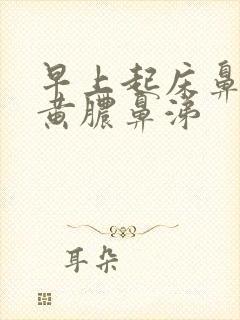 早上起床鼻
黄膿鼻涕
耳朵